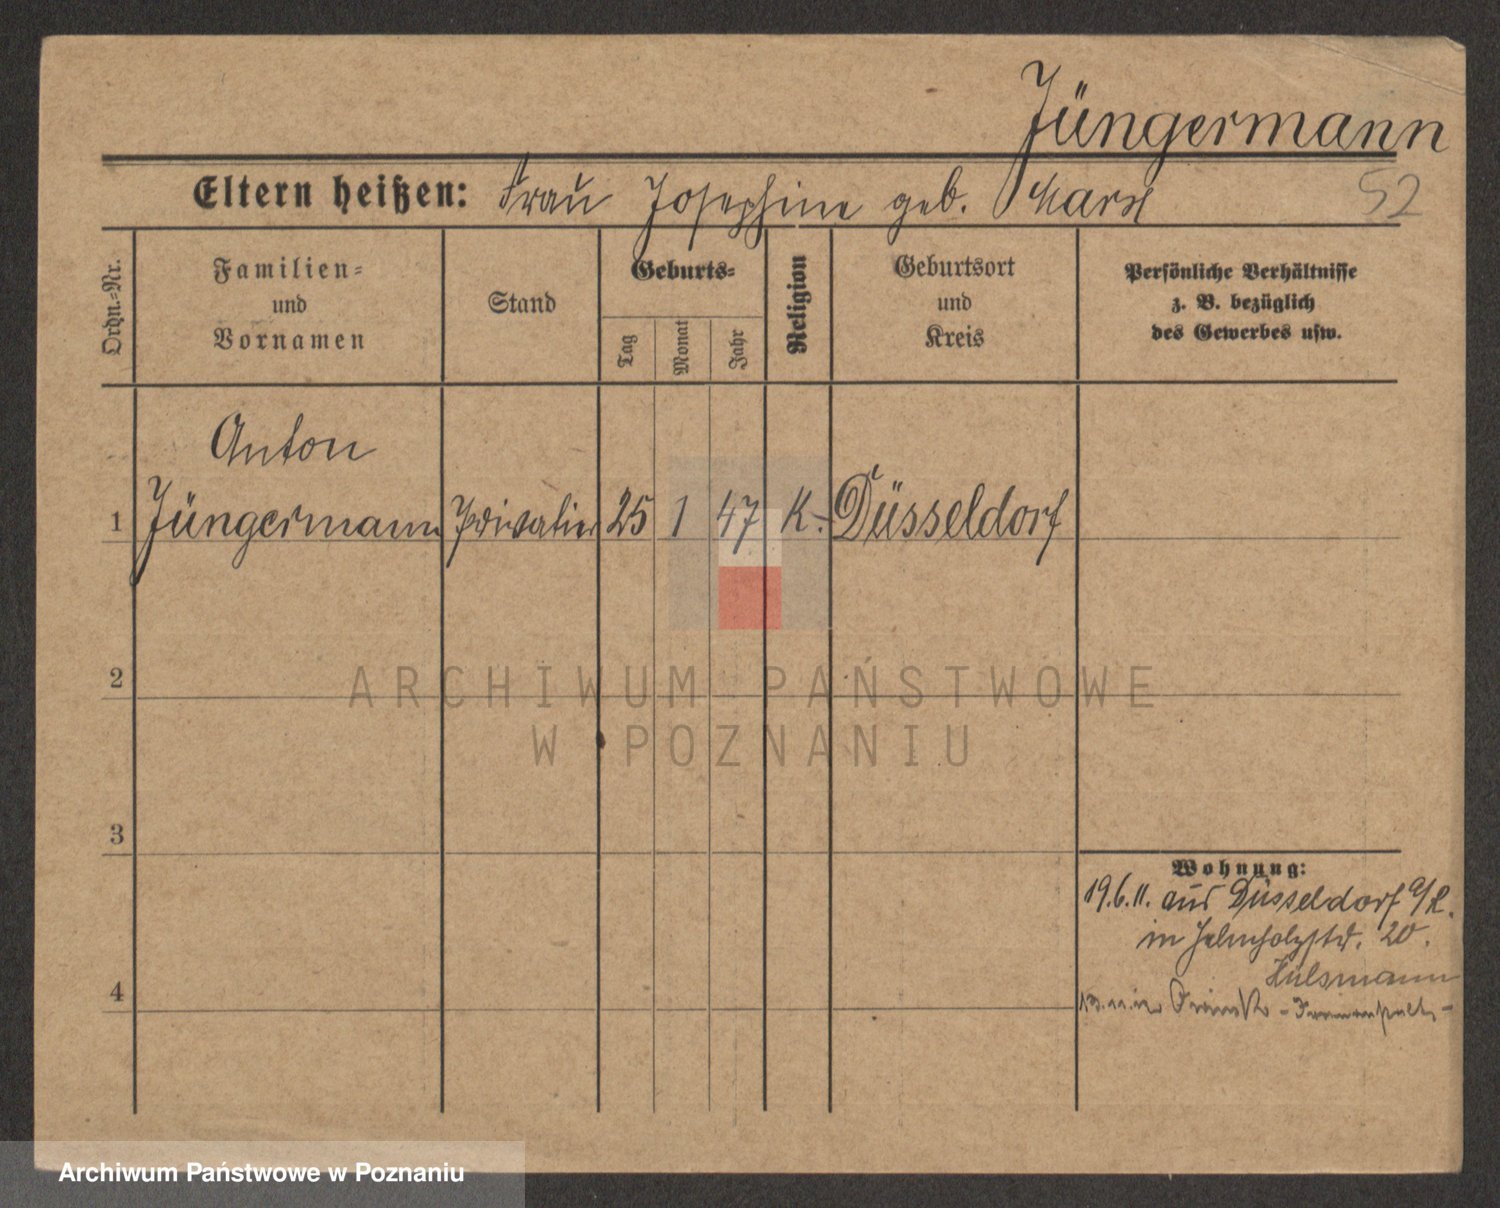 Jüngermann
Eltern heißen: Frau Josephine geb.
52
Ordn.-Nr.
Familien-
und
Vornamen
Stand
Geburts-
Tag
Monat
Jahr
Religion
Geburtsort
und
Kreis
Persönliche Verhältnisse
z. B. bezüglich
des Gewerbes usw.
Anton
1 Jüngermann Privatier 25 1 47 K. Düsseldorf
2
ARCHIWUM PAŃSTWOWE
W POZNANIU
3
Wohnung:
19.6.11. aus Düsseldorf a/R.
in Helmholzstr. 20.
Hülsmann
4
Archiwum Państwowe w Poznaniu